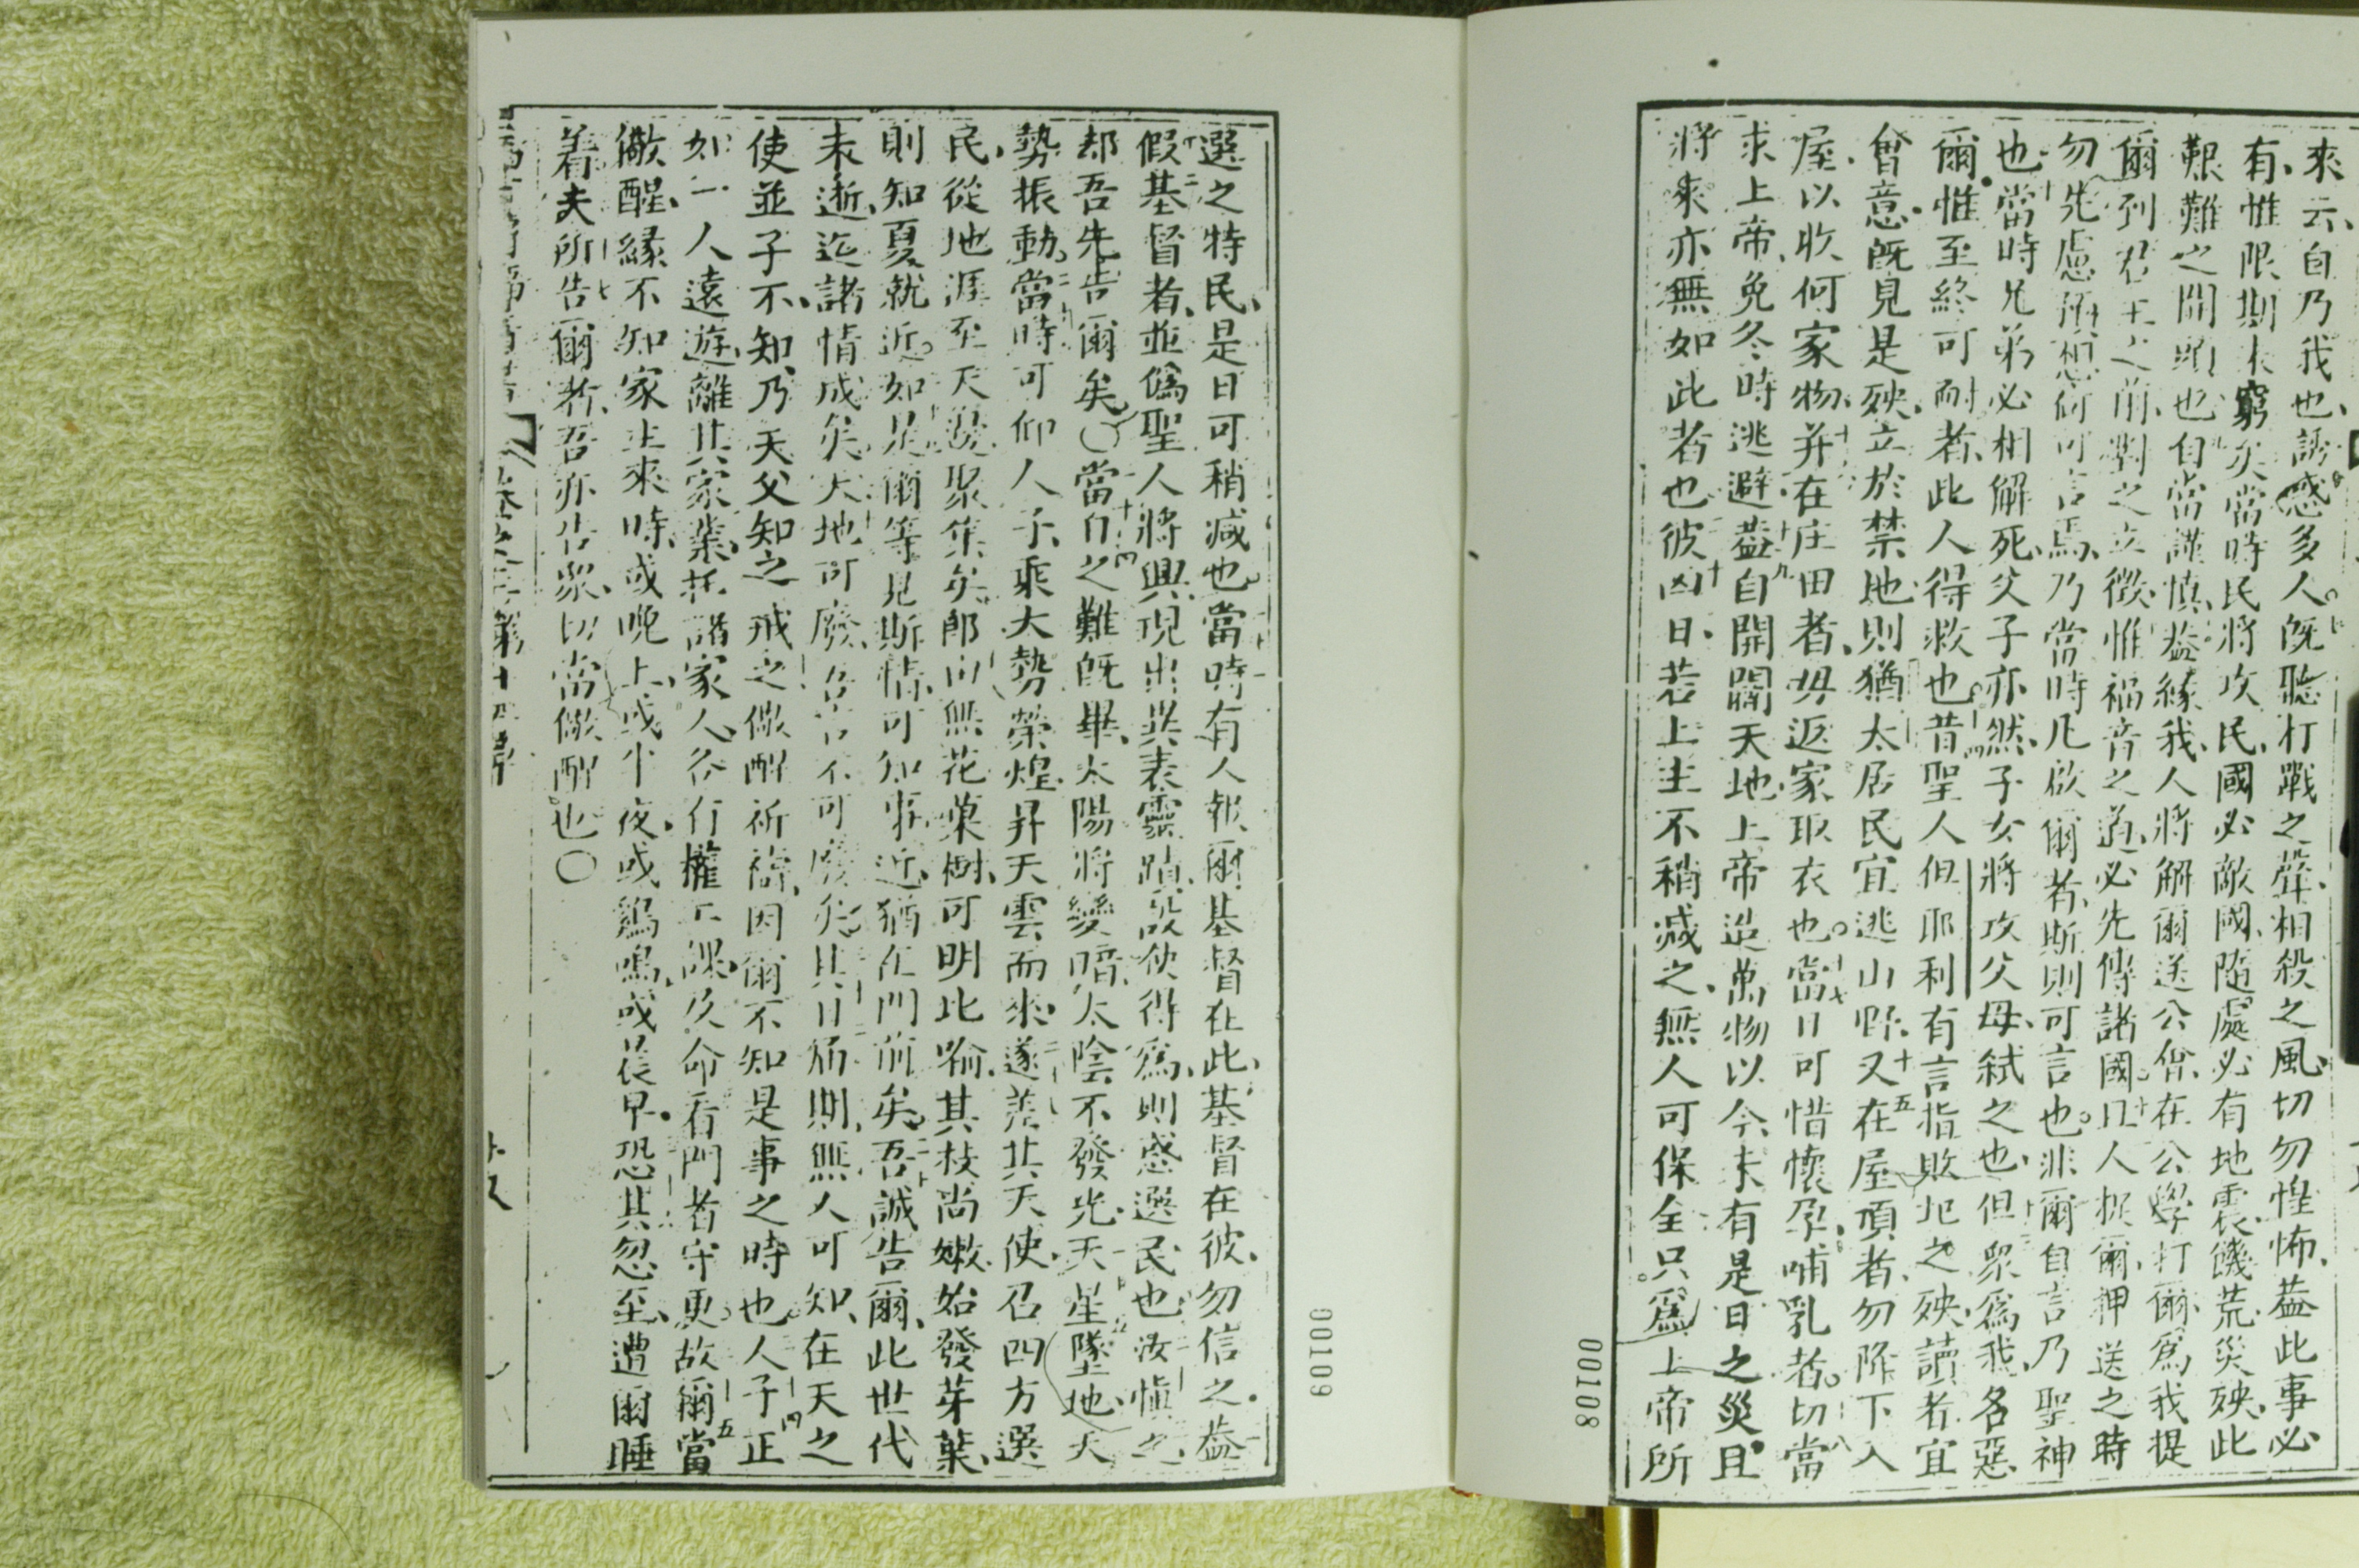 來云自乃我也誘惑多人既聽打戰之聲相殺之風切勿惶怖葢此事必
有惟限期未窮矣當時民將攻民國必敵國隨處必有地震饑荒災殃此
艱難之開頭也自當謹慎葢緣我人將解爾送公會在公學打爾爲我提
爾列君王之前對之立徵惟福音之道必先傳諸國且人捉爾押送之時
勿先慮所想何可言焉乃當時凡啟爾者斯則可言也非爾自言乃聖神
也當時兄弟必相解死父子亦然子女將攻父母弒之也但眾爲我名惡
爾惟至終可耐者此人得救也昔聖人但耶利有言指敗圯之殃讀者宜
會意既見是殃立於禁地則猶太居民宜逃山野又在屋頂者勿陞下入
屋以收何家物并在庄田者毋返家取衣也當日可惜懷孕哺乳者切當
求上帝免冬時逃避葢自開闢天地上帝造萬物以今未有是日之災且
將來亦無如此者也彼凶日若上主不稍減之無人可保全只爲上帝所
00108
00109
選之特民是日可稍減也當時有人報爾基督在此基督在彼勿信之葢
假基督者並僞聖人將興現出異表靈蹟設使得爲則惑選民也汝愼之
却吾先告爾矣〇當日之難既畢太陽將變暗太陰不發光天星墜地天
勢振動當時可仰人子乘大勢榮煌昇天雲而來遂差其天使召四方選
民從地涯至天邊聚集矣卽以無花菓樹可明比喻其枝尚嫩始發芽葉
則知夏就近如是爾等見斯情可知事近猶在門前矣吾誠告爾此世代
未逝迄諸情成矣天地可廢吾言不可廢矣其日瀕期無人可知在天之
使並子不知乃天父知之戒之儆醒祈禱因爾不知是事之時也人子正
如一人遠遊離其家業托諸家人各行權工課及命看門者守更故爾當
儆醒緣不知家主來時或晚上或半夜或鷄鳴或晨早恐其忽至遭爾睡
着夫所告爾者吾亦告眾切當儆醒也〇
卷之二第十四章